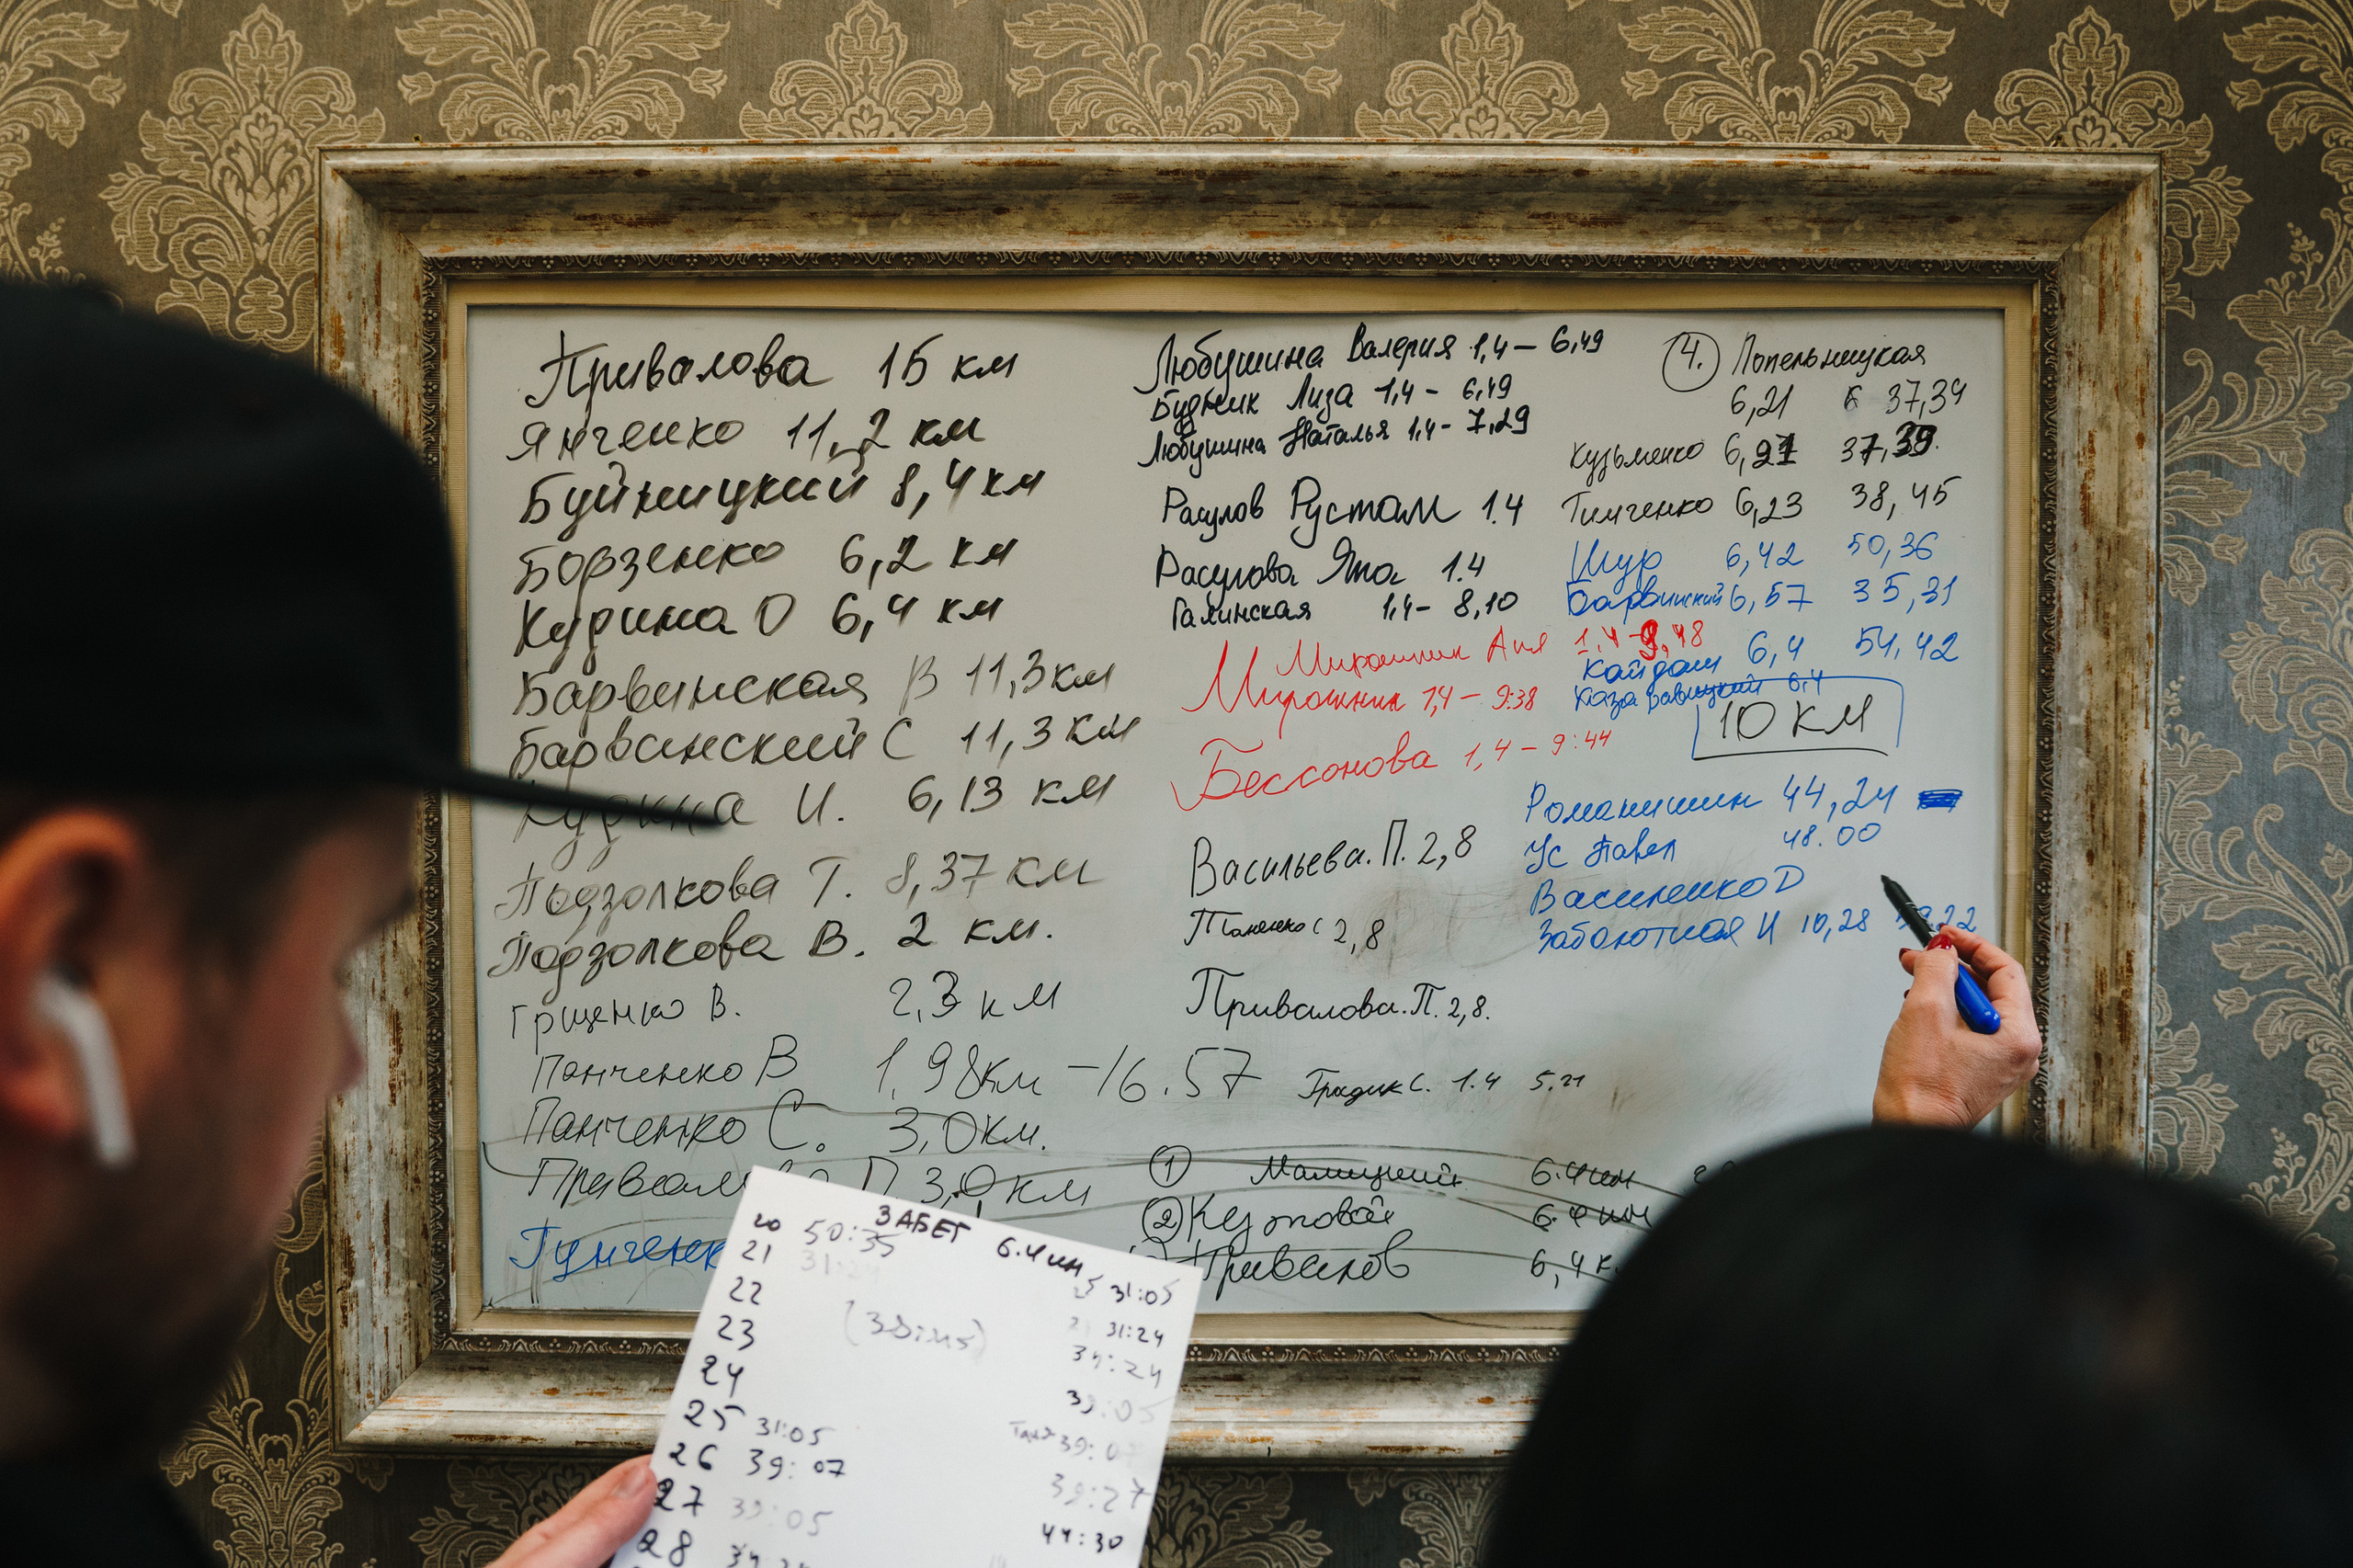 Привалова 15 км
Янченко 11,2 км
Буйницкий 8,4 км
Борзенко 6,2 км
Курина О 6,4 км
Барвинская В 11,3 км
Барвинский С 11,3 км
И. 6,13 км
Подзолкова Т. 8,37 км
Подзолкова В. 2 км.
Грищенко В. 2,3 км
Панченко В 1,98км – 16.57
Панченко С. 3,0км.
П. 3,0 км
Любушина Валерия 1,4 – 6,49
Будник Лиза 1,4 – 6,49
Любушина Наталья 1,4 – 7,29
Расулов Рустам 1.4
Расулова Яна 1.4
Галинская 1,4 – 8,10
Мирошник Аня 1,4 – 9,48
Мирошник 1,4 – 9:38
Бессонова 1,4 – 9:44
Васильева.П. 2,8
С 2,8
Привалова.П. 2,8.
Градик С. 1.4 5.21
① Мамицкий 6.4км
② Кутовой 6.4км
Приванов 6,4
④. Попельницкая
6,21 37,34
Кузьменко 6,21 37,39.
Тимченко 6,23 38,45
Шур 6,42 50,36
Барвинский 6,57 35,31
Кайдаш 6,4 54,42
6.4
10 КМ
Романишин 44,24
Ус Павел 48.00
Василенко D
Заболотная И 10,28
ЗАБЕГ 6.4км
20 50:35
21 31:24
22
23
24
25 31:05
26 39:07
27 39:05
28
31:05
31:24
34:24
39:05
Таня 39:07
39:27
44:30